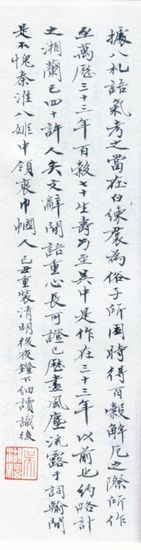 據八札語氣考之當在白練裙為俗子所困時得百穀解厄之際所作
至萬歷三十三年百穀七十生壽為至其中是作在三十三年以前也約略計
之湘蘭已四十許人矣文辭閒語重心長可證已歷盡風塵流露于詞翰閒
是不愧秦淮八姬中領袖巾幗人 己丑重裝清明後夜鐙下細讀識後